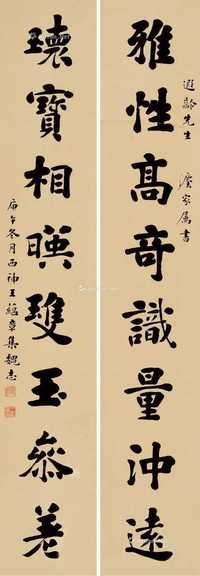 遐齡先生 漢家属書
雅性高奇識量沖遠
瓌寶相暎雙玉叅差
庚午冬月西神王蘊章集魏志